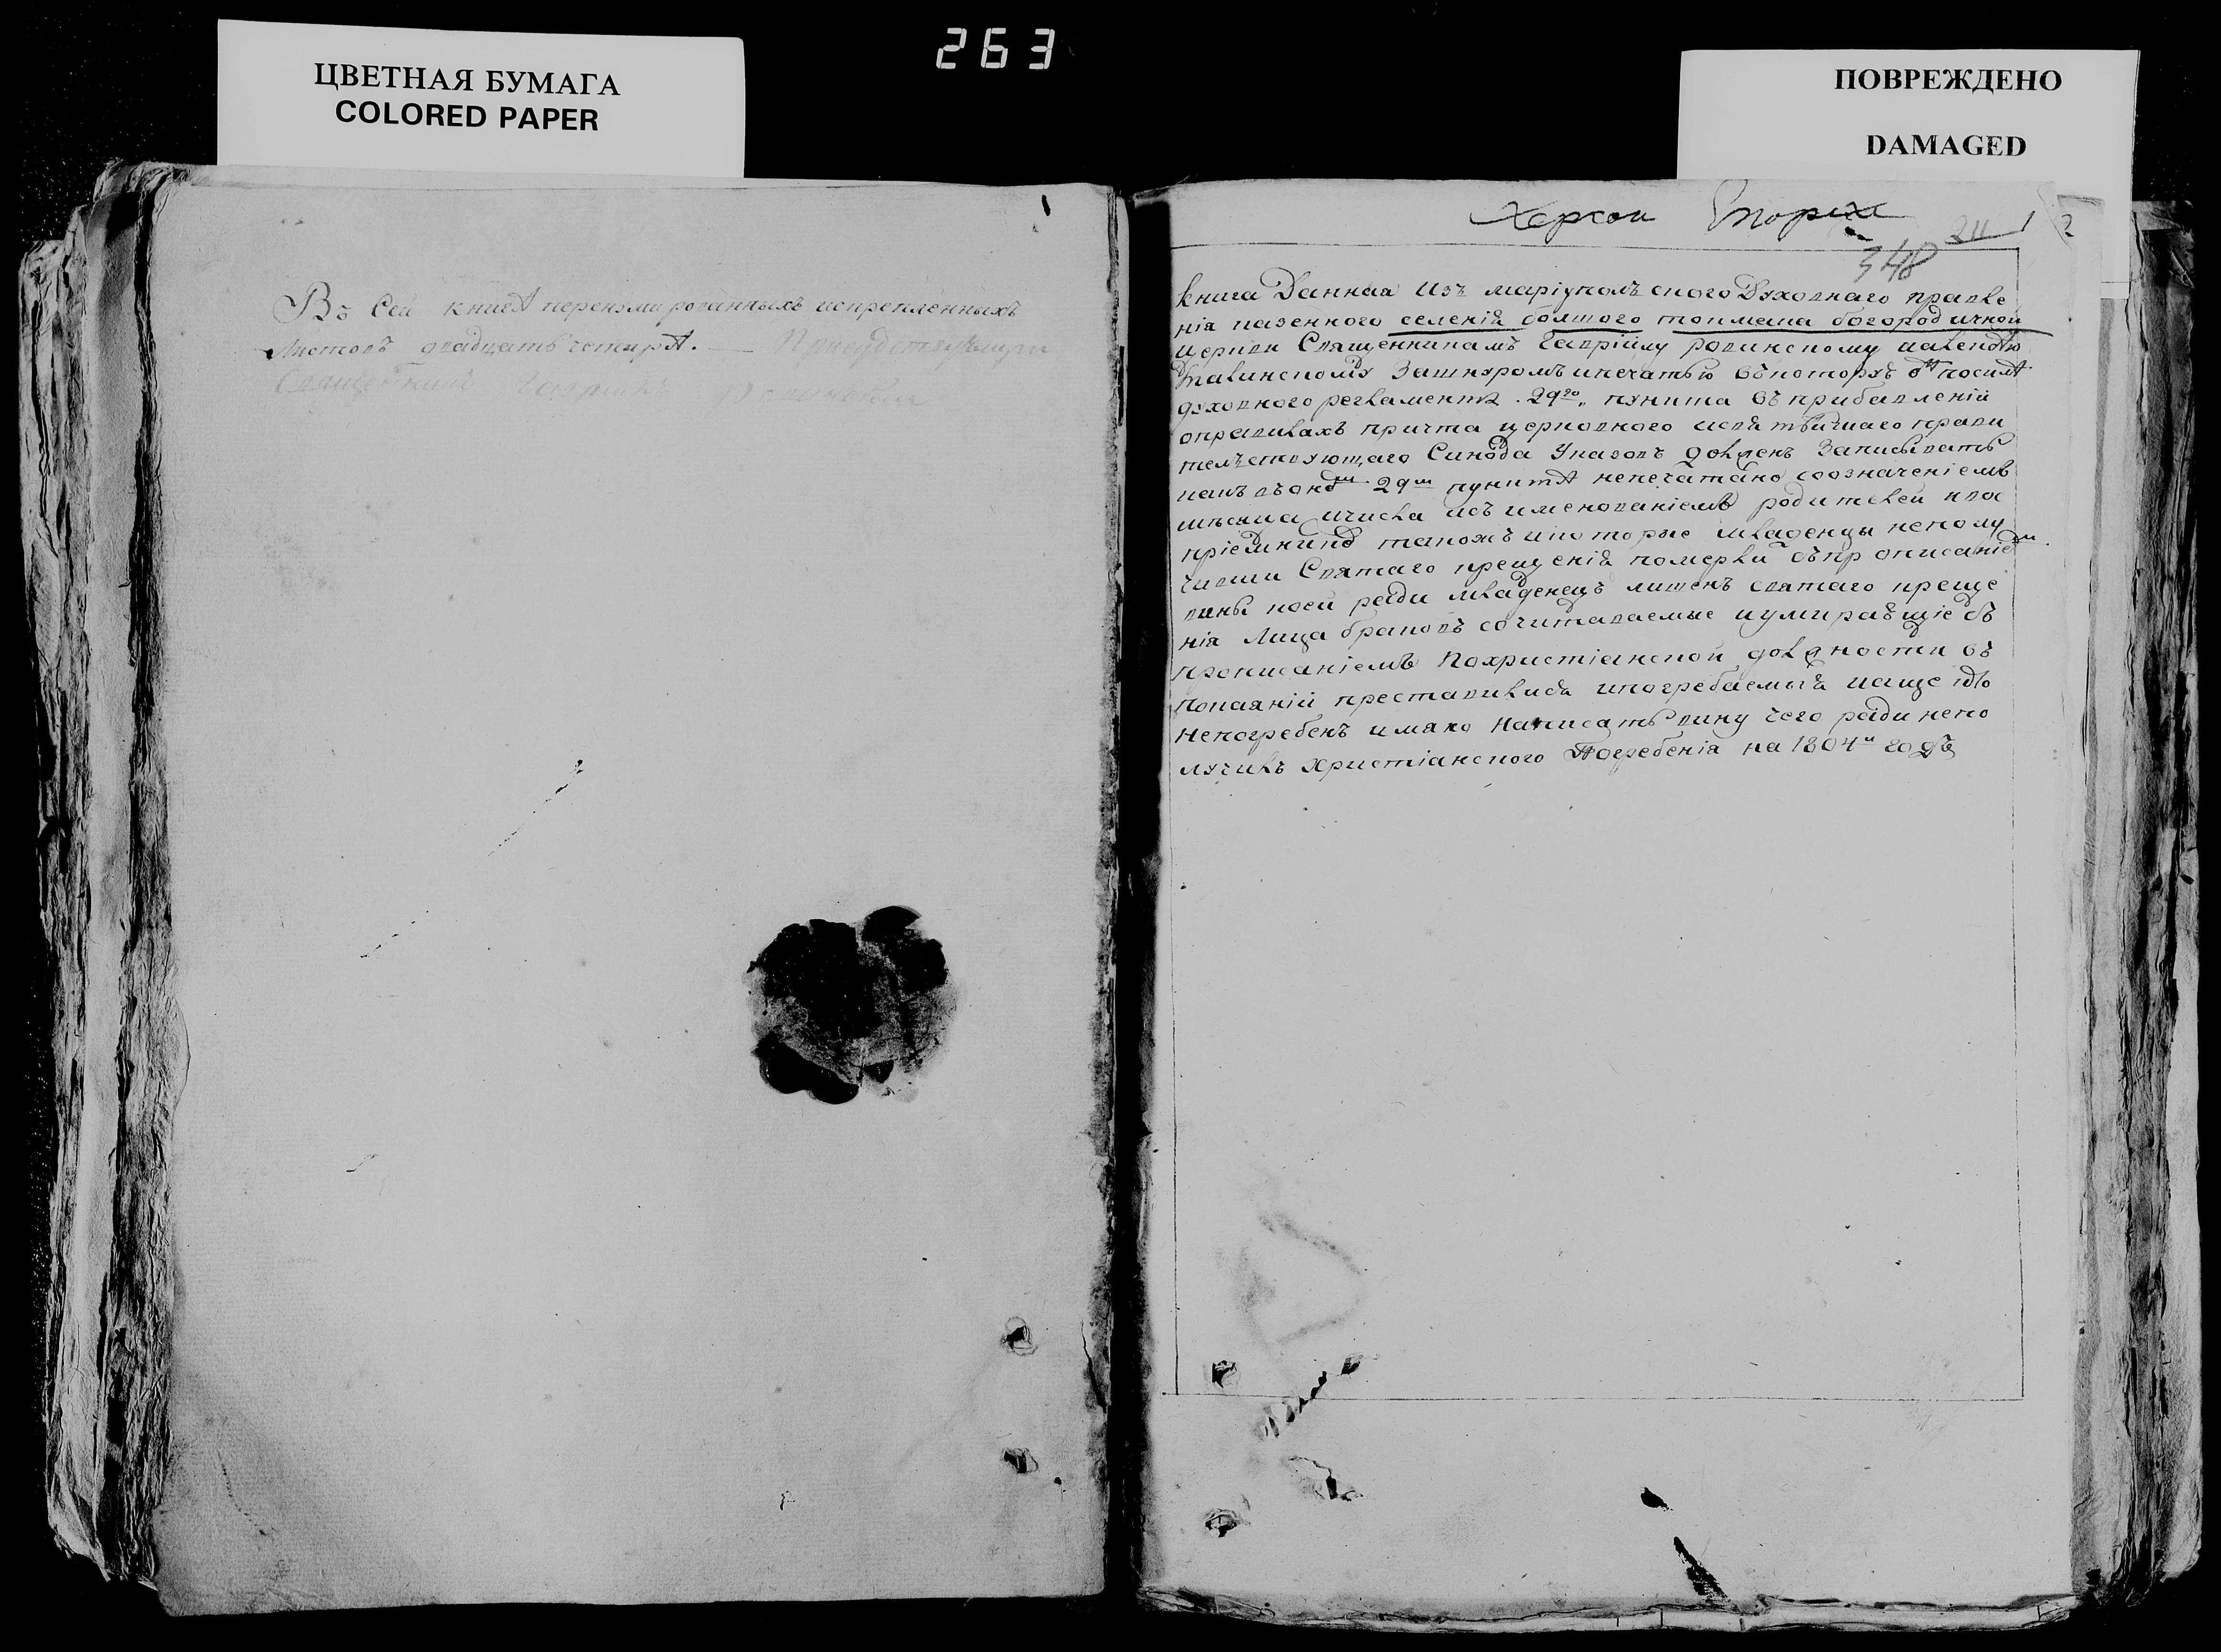 263
ЦВЕТНАЯ БУМАГА
COLORED PAPER
ПОВРЕЖДЕНО
DAMAGED
Въ Сей книгѣ перенумированныхъ искрепленныхъ
Листовъ двадцать четирѣ. — Присудствующи
Священникъ Гавриилъ
Херсон
211
348
книга Данная Изъ маріуполъского Духовнаго правле
нія казенного селенія болшого токмака богородичной
церкви Священникамъ Гавріилу ровинскому
Зашнуромъ ипечатью въкоторхъ посилѣ
духовного регламента. 29го. пункта съ прибавленій
оправилахъ причта церковного исвятѣйшаго прави
телъствующаго Синода Указовъ долженъ Записывать
какъ въоно 29м пунктѣ непечатано созначеніемъ
мѣсяца ичисла исъ именованіемъ родителей ивос
пріемнико такожъ икоторые младенцы неполу
чивши Святаго крещенія померли съпрописаніе
вины коей ради младенецъ лишенъ святаго креще
нія Лица браковъ сочитаваемые иумирающіе съ
прописаніемъ Похристіанской должности въ
Покаяній преставилися ипогребаемыя иаще кто
непогребенъ имяно написать вину чего ради непо
лучилъ христіанского Погребенія на 1804й годъ